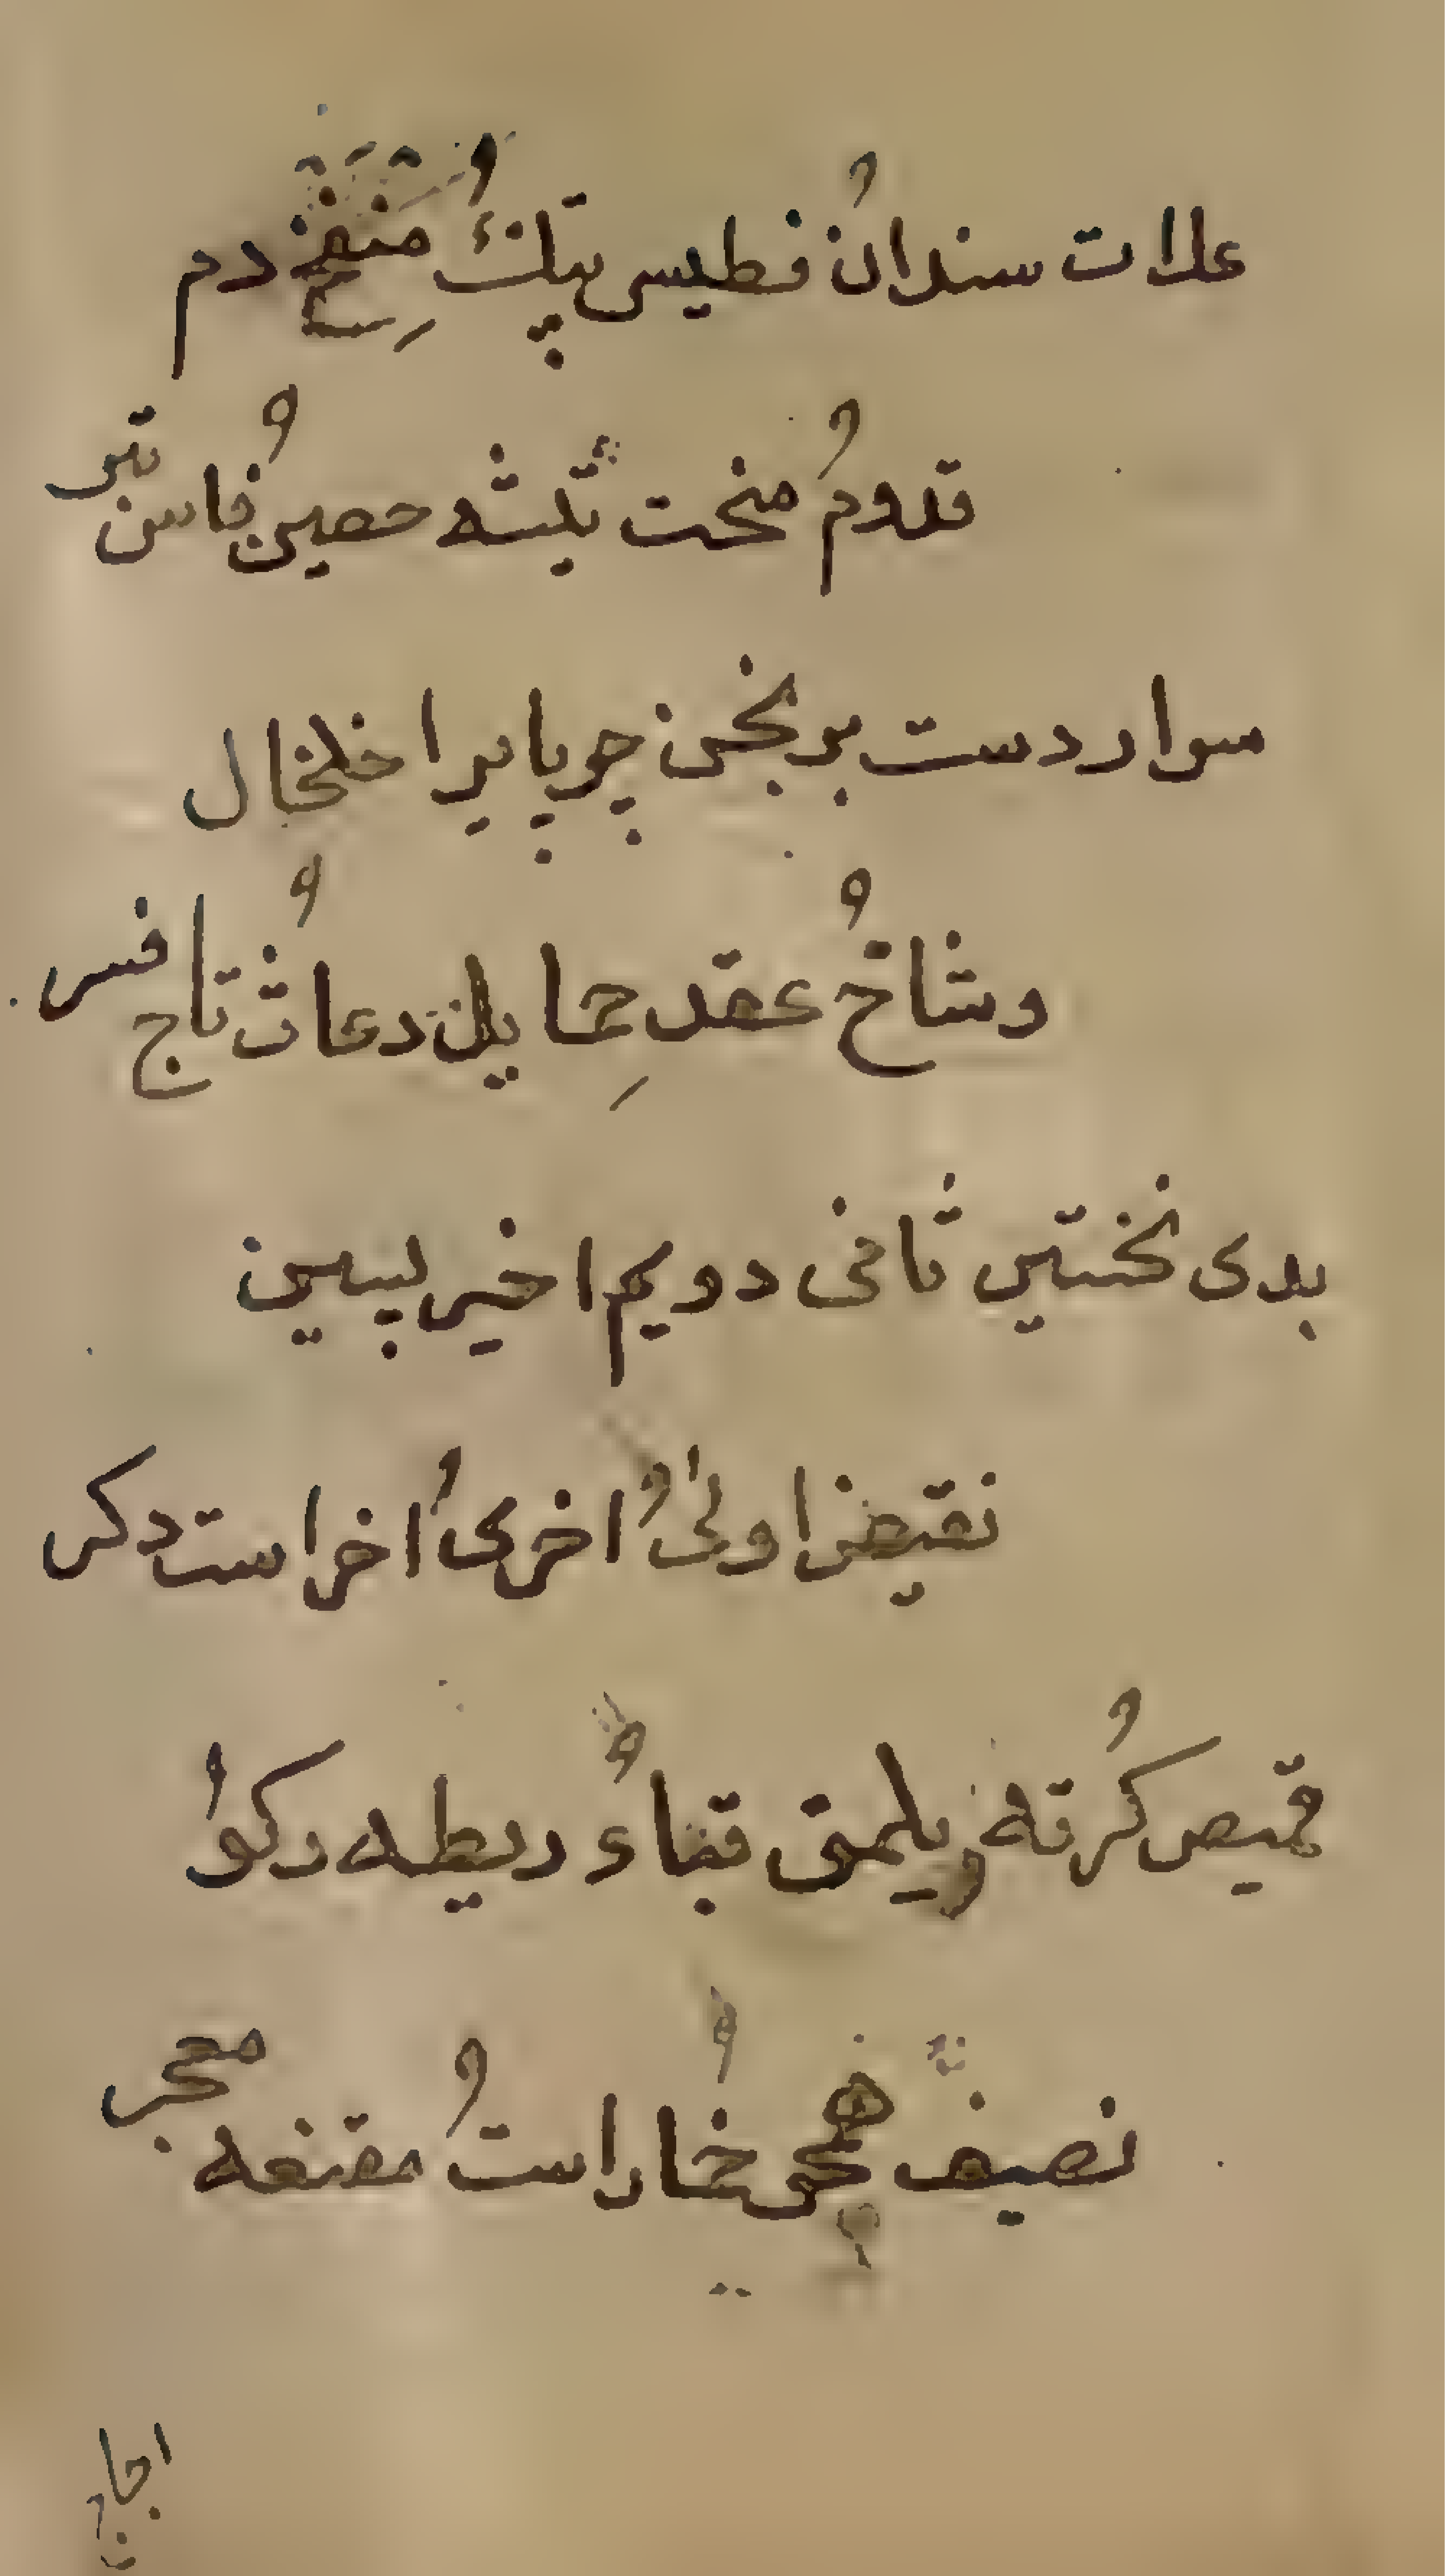 علات سندانُ فطیس پتك مِنفخ دم
قدومُ منحت تیشه حصینُ فاس تبر
سوار دست برنجن چو پای برا خلخال
وشاخُ عقد حِمایل دعاثُ تاج افسر
بدی نخستین ثانی دویم اخیر پسین
نقیض اولیٰ اُخریُ اخراست دکر
قمیص کُرته و یلمق قباء ریطه رکوُ
نصیف همچی خماراستُ مقنعه معجر